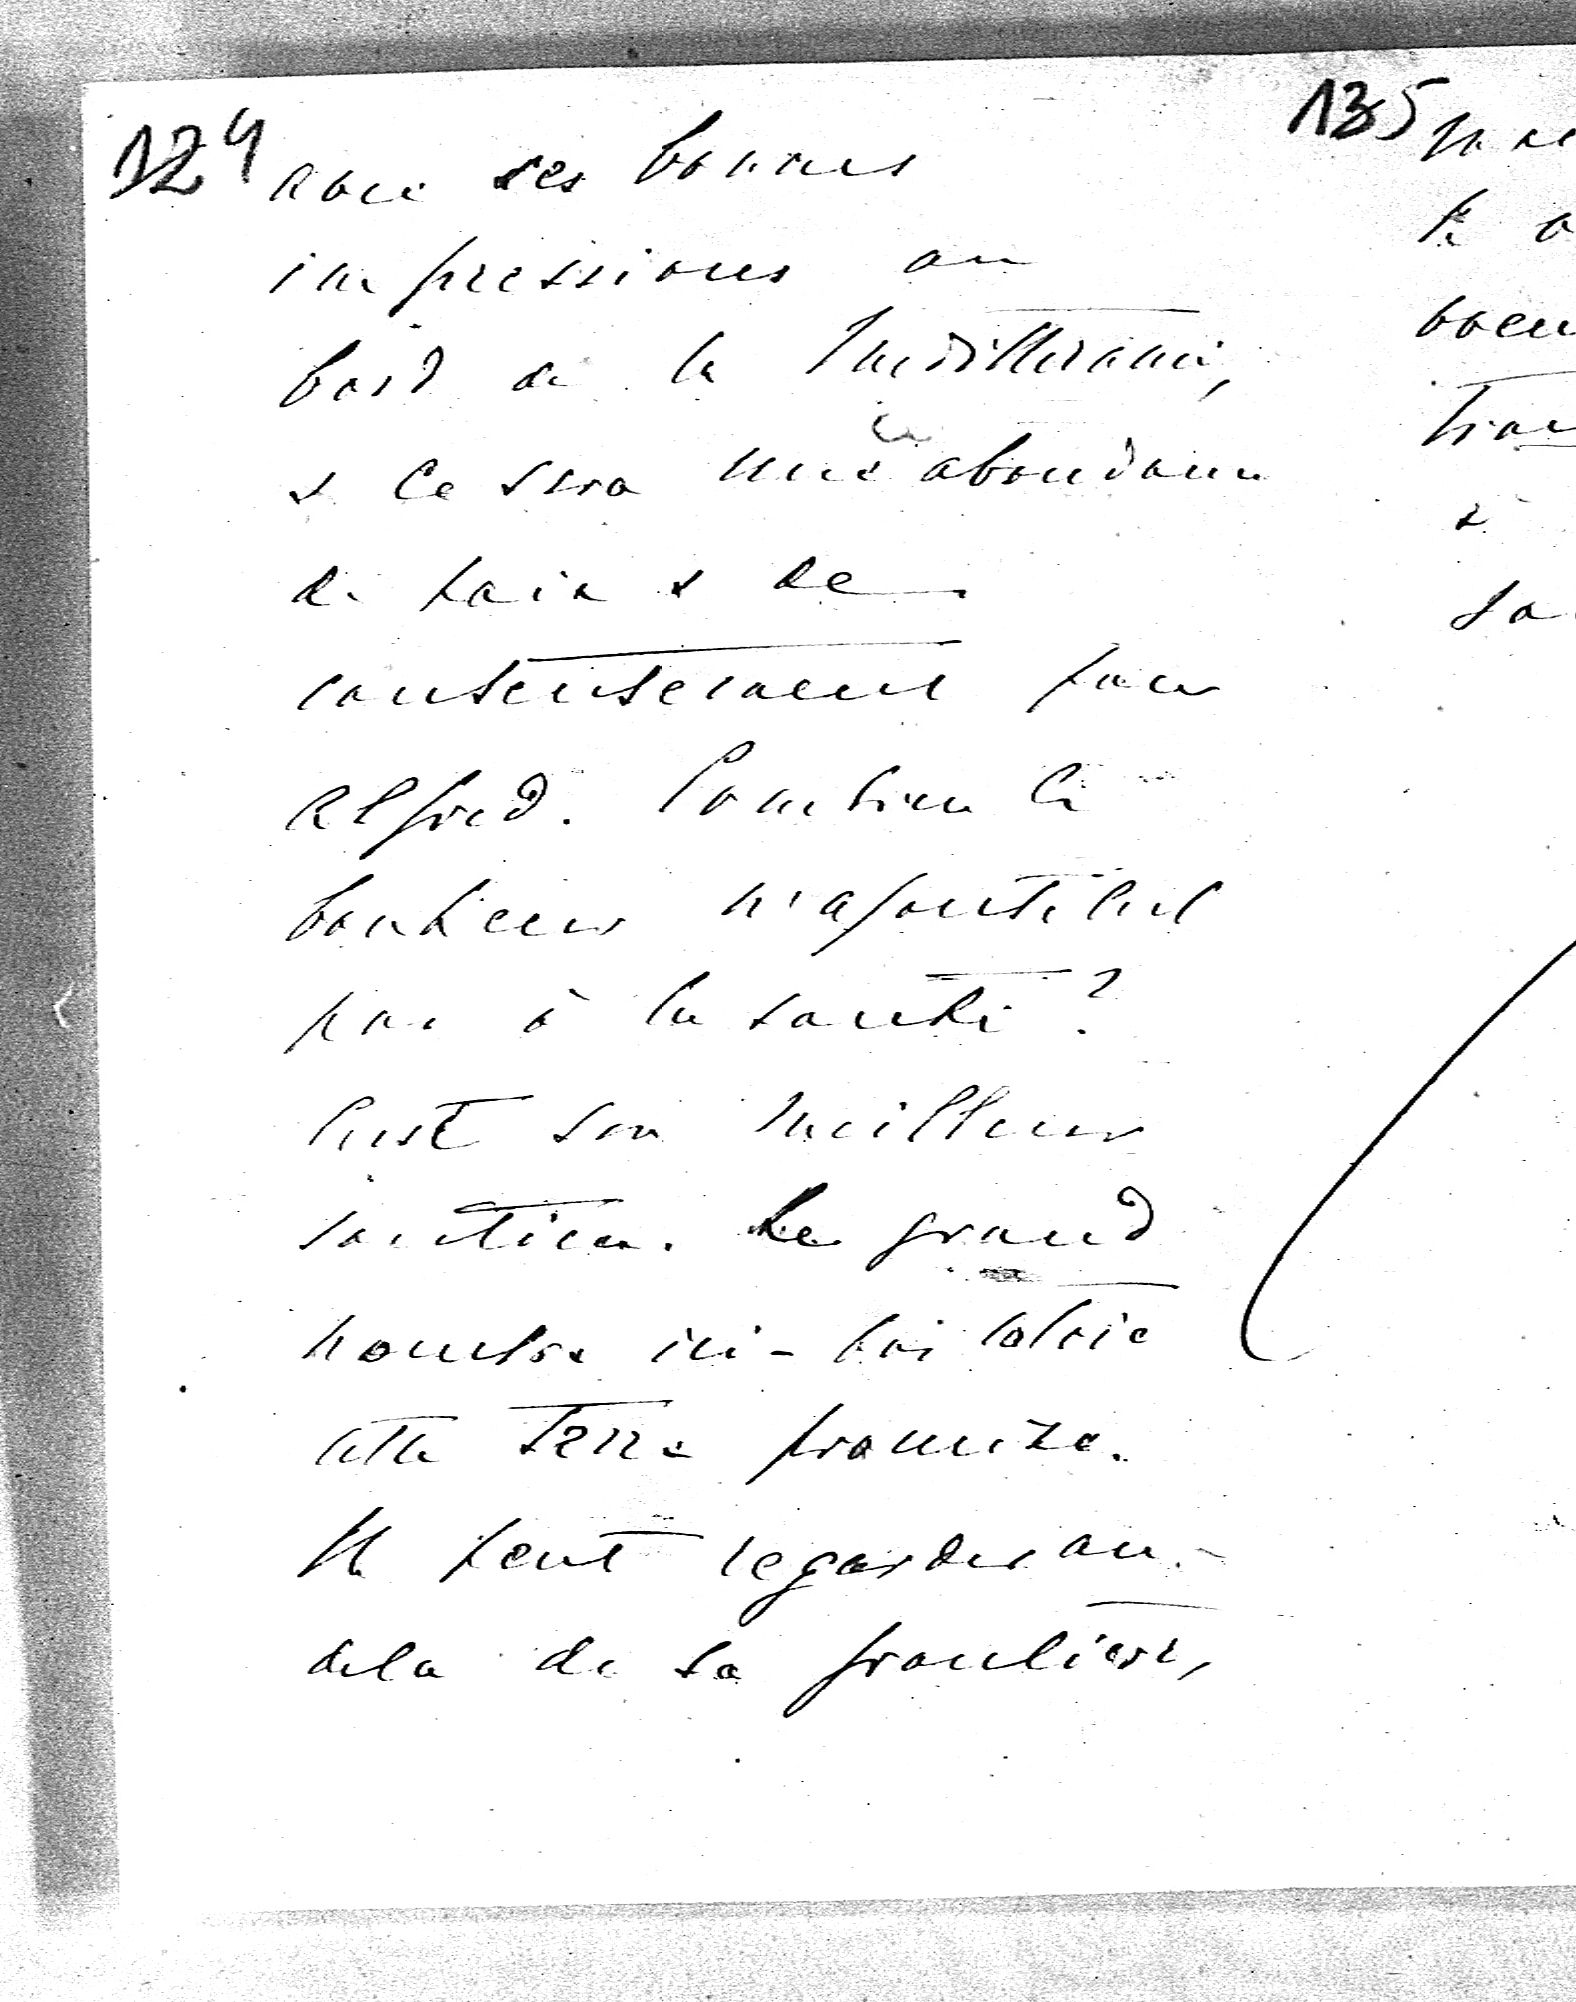 124
avec ses bonnes
impressions au
bord de la Méditerranée,
& ce sera une abondance
de paix & de
contentement pour
Alfred. Combien le
bonheur n'ajoute-t-il
pas à la santé ?
C'est son meilleur
soutien. Le grand
nombre ici-bas côtoie
cette terre promise.
Il peut regarder au-
delà de sa frontière,
135